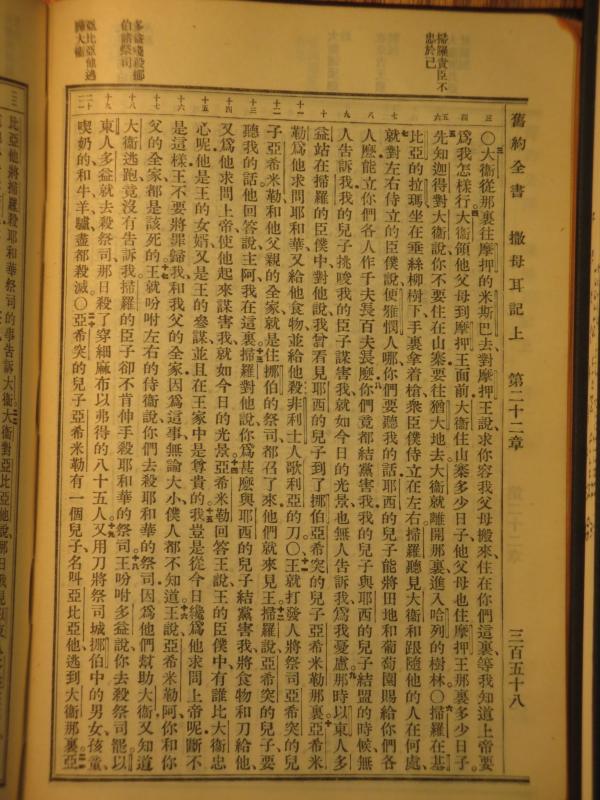 舊約全書　撒母耳記上　第二十二章　三百五十八
掃羅責臣不
忠於己
多益殺挪
伯諸祭司
亞比亞他逃
三　四　五　六　七　八　九　十　十一　十二　十三　十四　十五　十六　十七　十八　十九　二十　二一
○大衛從那裏往摩押的米斯巴去對摩押王說求你容我父母搬來住在你們這裏等我知道上帝要
爲我怎樣行大衛領他父母到摩押王面前大衛住山寨多少日子他父母也住摩押王那裏多少日子
先知迦得對大衛說你不要住在山寨要往猶大地去大衛就離開那裏進入哈列的樹林○掃羅在基
比亞的拉瑪坐在垂絲柳樹下手裏拿着槍衆臣僕侍立在左右掃羅聽見大衛和跟隨他的人在何處
就對左右侍立的臣僕說便雅憫人哪你們要聽我的話耶西的兒子能將田地和葡萄園賜給你們各
人麽能立你們各人作千夫長百夫長麽你們竟都結黨害我我的兒子與耶西的兒子結盟的時候無
人告訴我我的兒子挑唆我的臣子謀害我就如今日的光景也無人告訴我爲我憂慮那時以東人多
益站在掃羅的臣僕中對他說我曾看見耶西的兒子到了挪伯亞希突的兒子亞希米勒那裏亞希米
勒爲他求問耶和華又給他食物並給他殺非利士人歌利亞的刀○王就打發人將祭司亞希突的兒
子亞希米勒和他父親的全家就是住挪伯的祭司都召了來他們就來見王掃羅說亞希突的兒子要
聽我的話他回答說主阿我在這裏掃羅對他說你爲甚麽與耶西的兒子結黨害我將食物和刀給他
又爲他求問上帝使他起來謀害我就如今日的光景亞希米勒回答王說王的臣僕中有誰比大衛忠
心呢他是王的女婿又是王的參謀並且在王家中是尊貴的我豈是從今日纔爲他求問上帝呢斷不
是這樣王不要將罪歸我和我父的全家因爲這事無論大小僕人都不知道王說亞希米勒阿你和你
父的全家都是該死的王就吩咐左右的侍衛說你們去殺耶和華的祭司因爲他們幫助大衛又知道
大衛逃跑竟沒有告訴我掃羅的臣子卻不肯伸手殺耶和華的祭司王吩咐多益說你去殺祭司罷以
東人多益就去殺祭司那日殺了穿細麻布以弗得的八十五人又用刀將祭司城挪伯中的男女孩童
喫奶的和牛羊驢盡都殺滅○亞希突的兒子亞希米勒有一個兒子名叫亞比亞他逃到大衛那裏亞
比亞他將掃羅殺耶和華祭司的事告訴大衛大衛對亞比亞他說那日我見